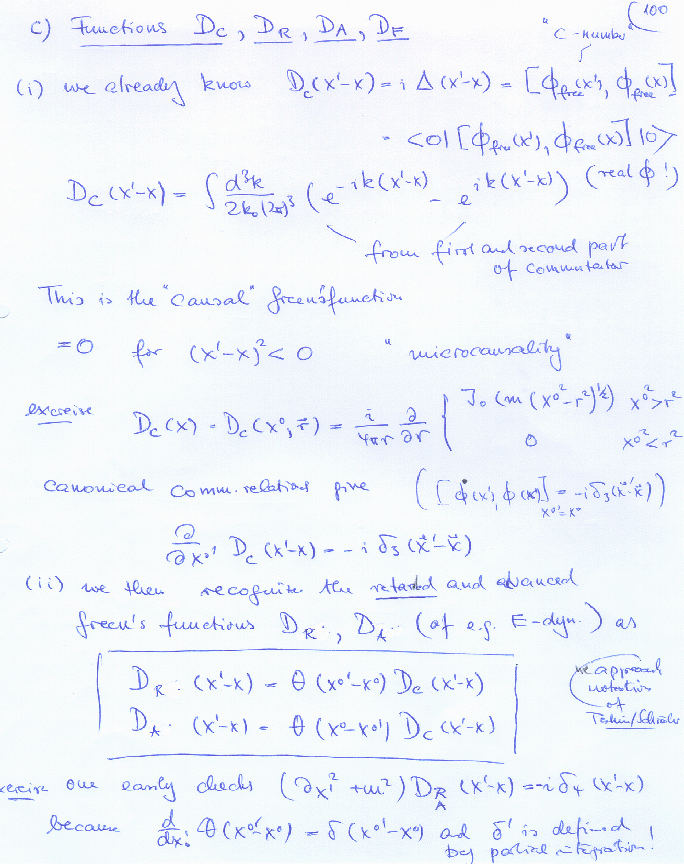 100
c) Functions D_C, D_R, D_A, D_F
"C-number"
(i) we already know D_C(x'-x) = i Δ(x'-x) = [ϕ_free(x'), ϕ_free(x)]
= <0| [ϕ_free(x'), ϕ_free(x)] |0>
D_C(x'-x) = ∫ d³k / 2k₀(2π)³ (e^{-ik(x'-x)} - e^{ik(x'-x)}) (real ϕ!)
from first and second part
of commutator
This is the "causal" Green's function
=0 for (x'-x)² < 0 "microcausality"
exercise D_C(x) = D_C(x⁰, r⃗) = i/4πr ∂/∂r { J₀(m(x⁰²-r²)^{1/2}) x⁰²>r²
0 x⁰²<r²
canonical comm. relations give ([ϕ̇(x'), ϕ(x)]_{x⁰'=x⁰} = -iδ₃(x⃗'-x⃗))
∂/∂x⁰' D_C(x'-x) = -i δ₃(x⃗'-x⃗)
(ii) we then recognize the retarded and advanced
Green's functions D_R, D_A (of e.g. E-dyn.) as
D_R : (x'-x) = θ(x⁰'-x⁰) D_C(x'-x)
D_A : (x'-x) = θ(x⁰-x⁰') D_C(x'-x)
notation
of
exercise one easily checks (∂²_{x'} + m²) D_{R/A}(x'-x) = -iδ₄(x'-x)
because d/dx₀' θ(x⁰'-x⁰) = δ(x⁰'-x⁰) ad δ' is defined
by partial integration!